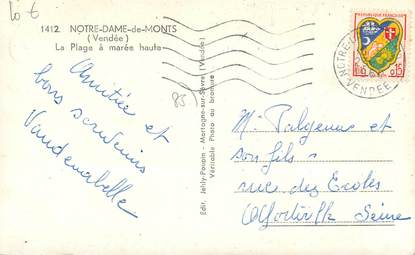 10 €
1412 NOTRE-DAME-de-MONTS
(Vendée)
La Plage à marée haute
85
Amitiés et
bons souvenirs
Vandenabelle
Edit. Jehly-Poupin - Mortagne-sur-Sèvre (Vendée)
Véritable Photo au bromure
REPUBLIQUE FRANÇAISE
0,15
NOTRE-
VENDÉE
Mr Pilgenus et
son fils
rue des Ecoles
Alfortville Seine